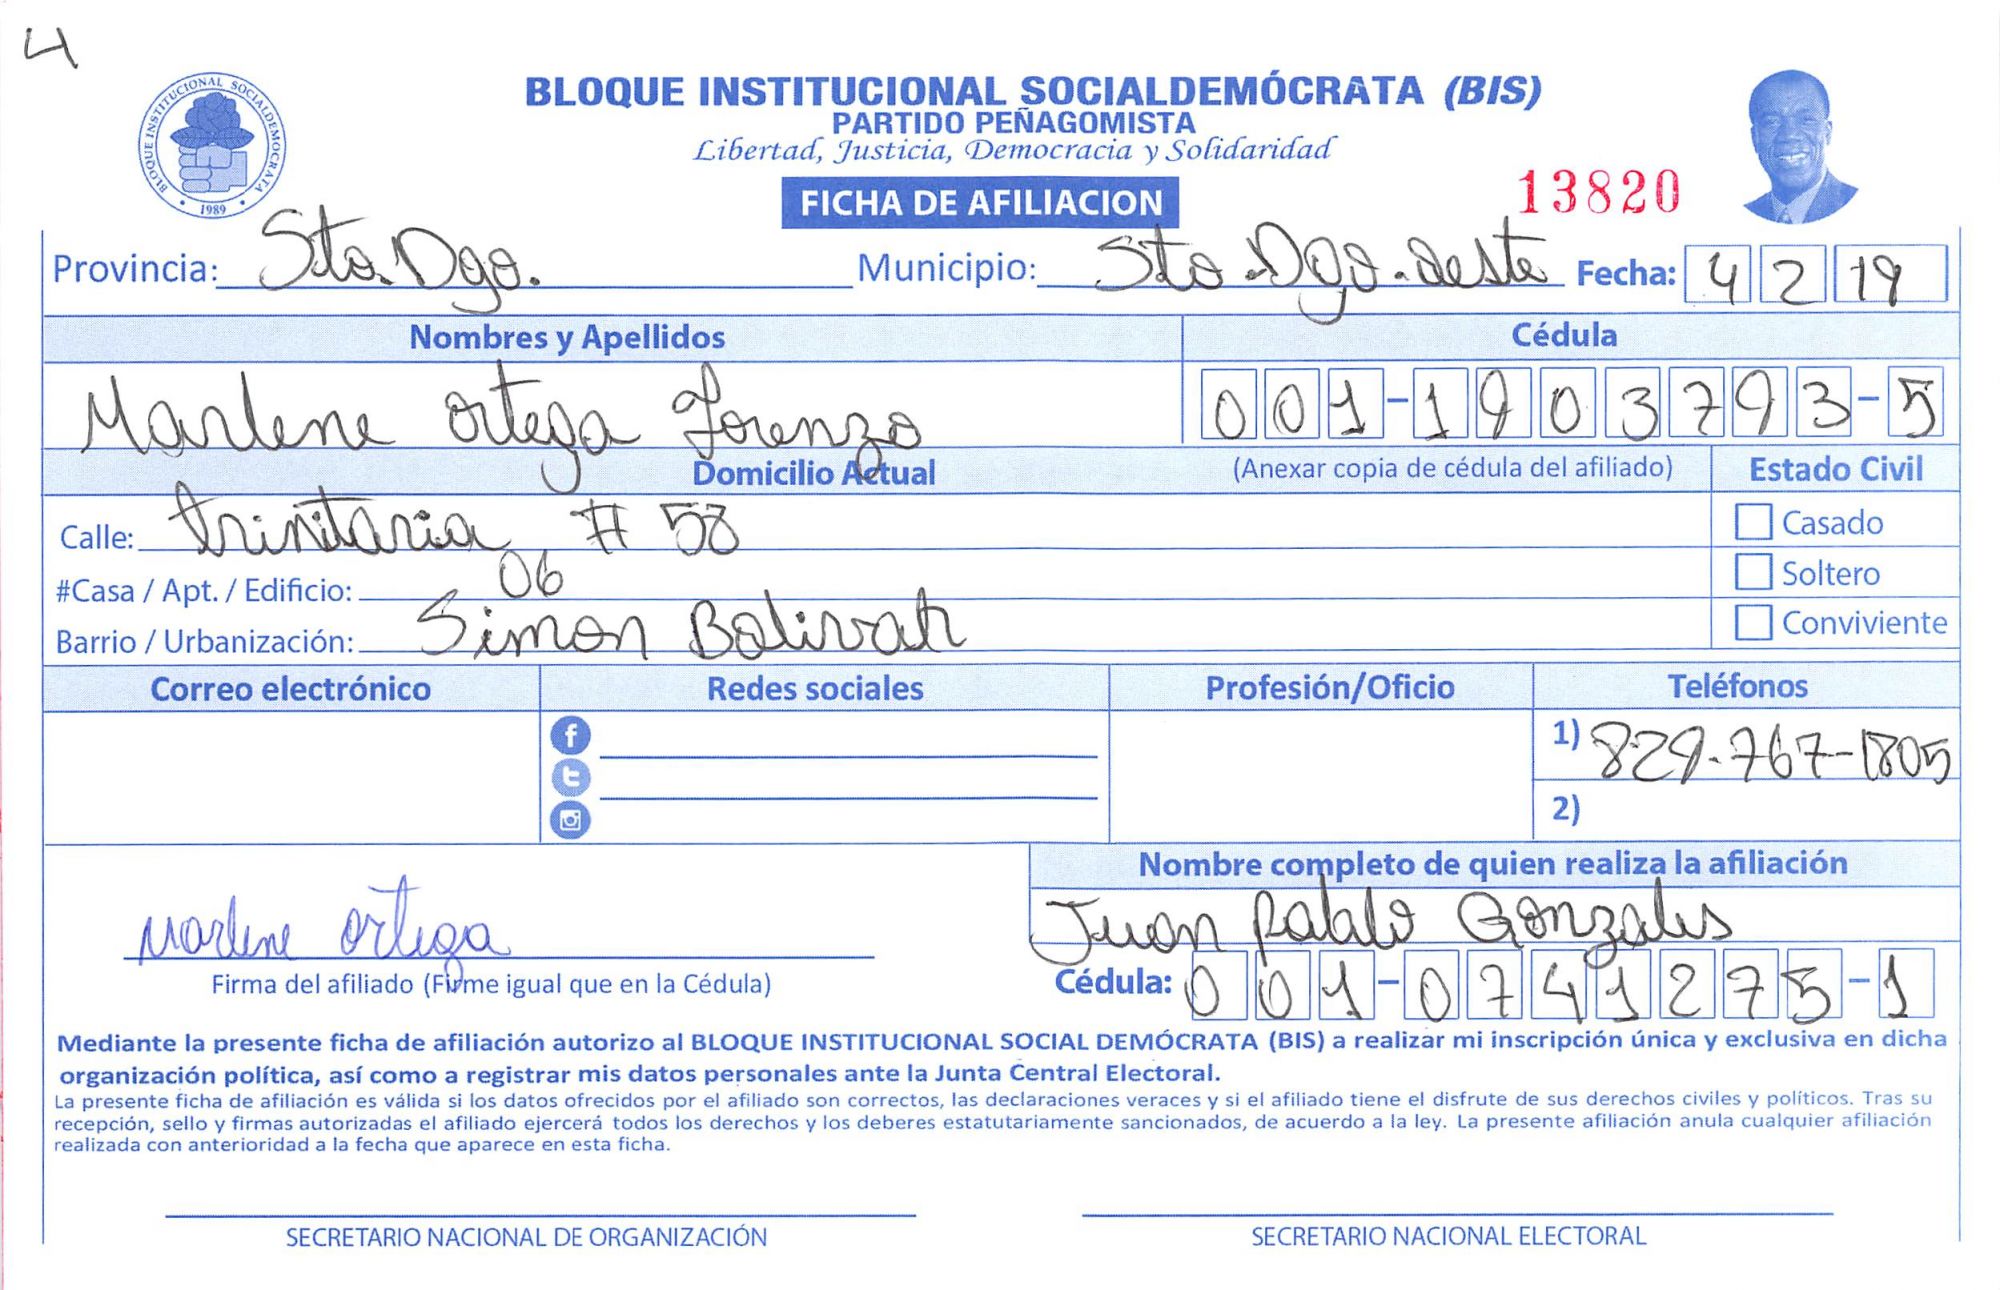 4
BLOQUE INSTITUCIONAL SOCIALDEMÓCRATA (BIS)
PARTIDO PEÑAGOMISTA
Libertad, Justicia, Democracia y Solidaridad
BLOQUE INSTITUCIONAL SOCIALDEMOCRATA
1989
FICHA DE AFILIACION
13820
Provincia: Sto. Dgo. Municipio: Sto. Dgo. oeste Fecha: 4 2 19
Nombres y Apellidos Cédula
Marlene Ortega Lorenzo 001-1903793-5
Domicilio Actual (Anexar copia de cédula del afiliado) Estado Civil
Calle: trinitaria # 58 Casado
#Casa / Apt. / Edificio: 06 Soltero
Barrio / Urbanización: Simon Bolivar Conviviente
Correo electrónico Redes sociales Profesión/Oficio Teléfonos
1) 829-767-1805
2)
Nombre completo de quien realiza la afiliación
Juan Pablo Gonzales
Marlene Ortega
Firma del afiliado (Firme igual que en la Cédula) Cédula: 001-0741275-1
Mediante la presente ficha de afiliación autorizo al BLOQUE INSTITUCIONAL SOCIAL DEMÓCRATA (BIS) a realizar mi inscripción única y exclusiva en dicha
organización política, así como a registrar mis datos personales ante la Junta Central Electoral.
La presente ficha de afiliación es válida si los datos ofrecidos por el afiliado son correctos, las declaraciones veraces y si el afiliado tiene el disfrute de sus derechos civiles y políticos. Tras su
recepción, sello y firmas autorizadas el afiliado ejercerá todos los derechos y los deberes estatutariamente sancionados, de acuerdo a la ley. La presente afiliación anula cualquier afiliación
realizada con anterioridad a la fecha que aparece en esta ficha.
SECRETARIO NACIONAL DE ORGANIZACIÓN SECRETARIO NACIONAL ELECTORAL